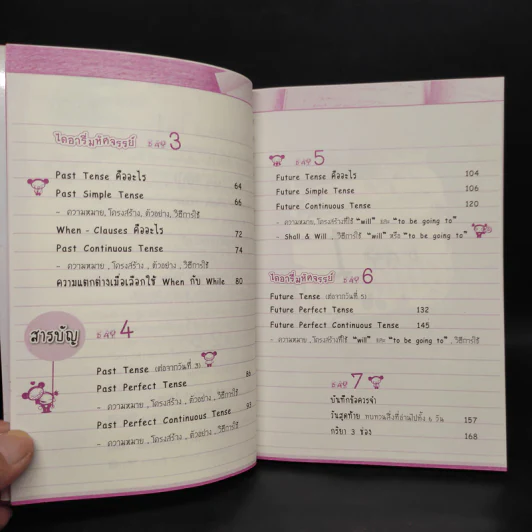 ไดอารี่มหัศจรรย์ 3
Past Tense คืออะไร 64
Past Simple Tense 66
- ความหมาย, โครงสร้าง, ตัวอย่าง, วิธีการใช้
When - Clauses คืออะไร 72
Past Continuous Tense 74
- ความหมาย, โครงสร้าง, ตัวอย่าง, วิธีการใช้
ความแตกต่างเมื่อเลือกใช้ When กับ While 80
สารบัญ
4
Past Tense (ต่อจากวันที่ 3)
Past Perfect Tense 86
- ความหมาย, โครงสร้าง, ตัวอย่าง, วิธีการใช้
Past Perfect Continuous Tense 93
- ความหมาย, โครงสร้าง, ตัวอย่าง, วิธีการใช้
5
Future Tense คืออะไร 104
Future Simple Tense 106
Future Continuous Tense 120
- ความหมาย, โครงสร้างที่ใช้ "will" และ "to be going to"
- Shall & Will, วิธีการใช้ "will" หรือ "to be going to"
ไดอารี่มหัศจรรย์ 6
Future Tense (ต่อจากวันที่ 5)
Future Perfect Tense 132
Future Perfect Continuous Tense 145
- ความหมาย, โครงสร้างที่ใช้ "will" และ "to be going to", วิธีการใช้
7
บันทึกรังควรจำ
วันสุดท้าย ทบทวนสิ่งที่อ่านไปทั้ง 6 วัน 157
กริยา 3 ช่อง 168